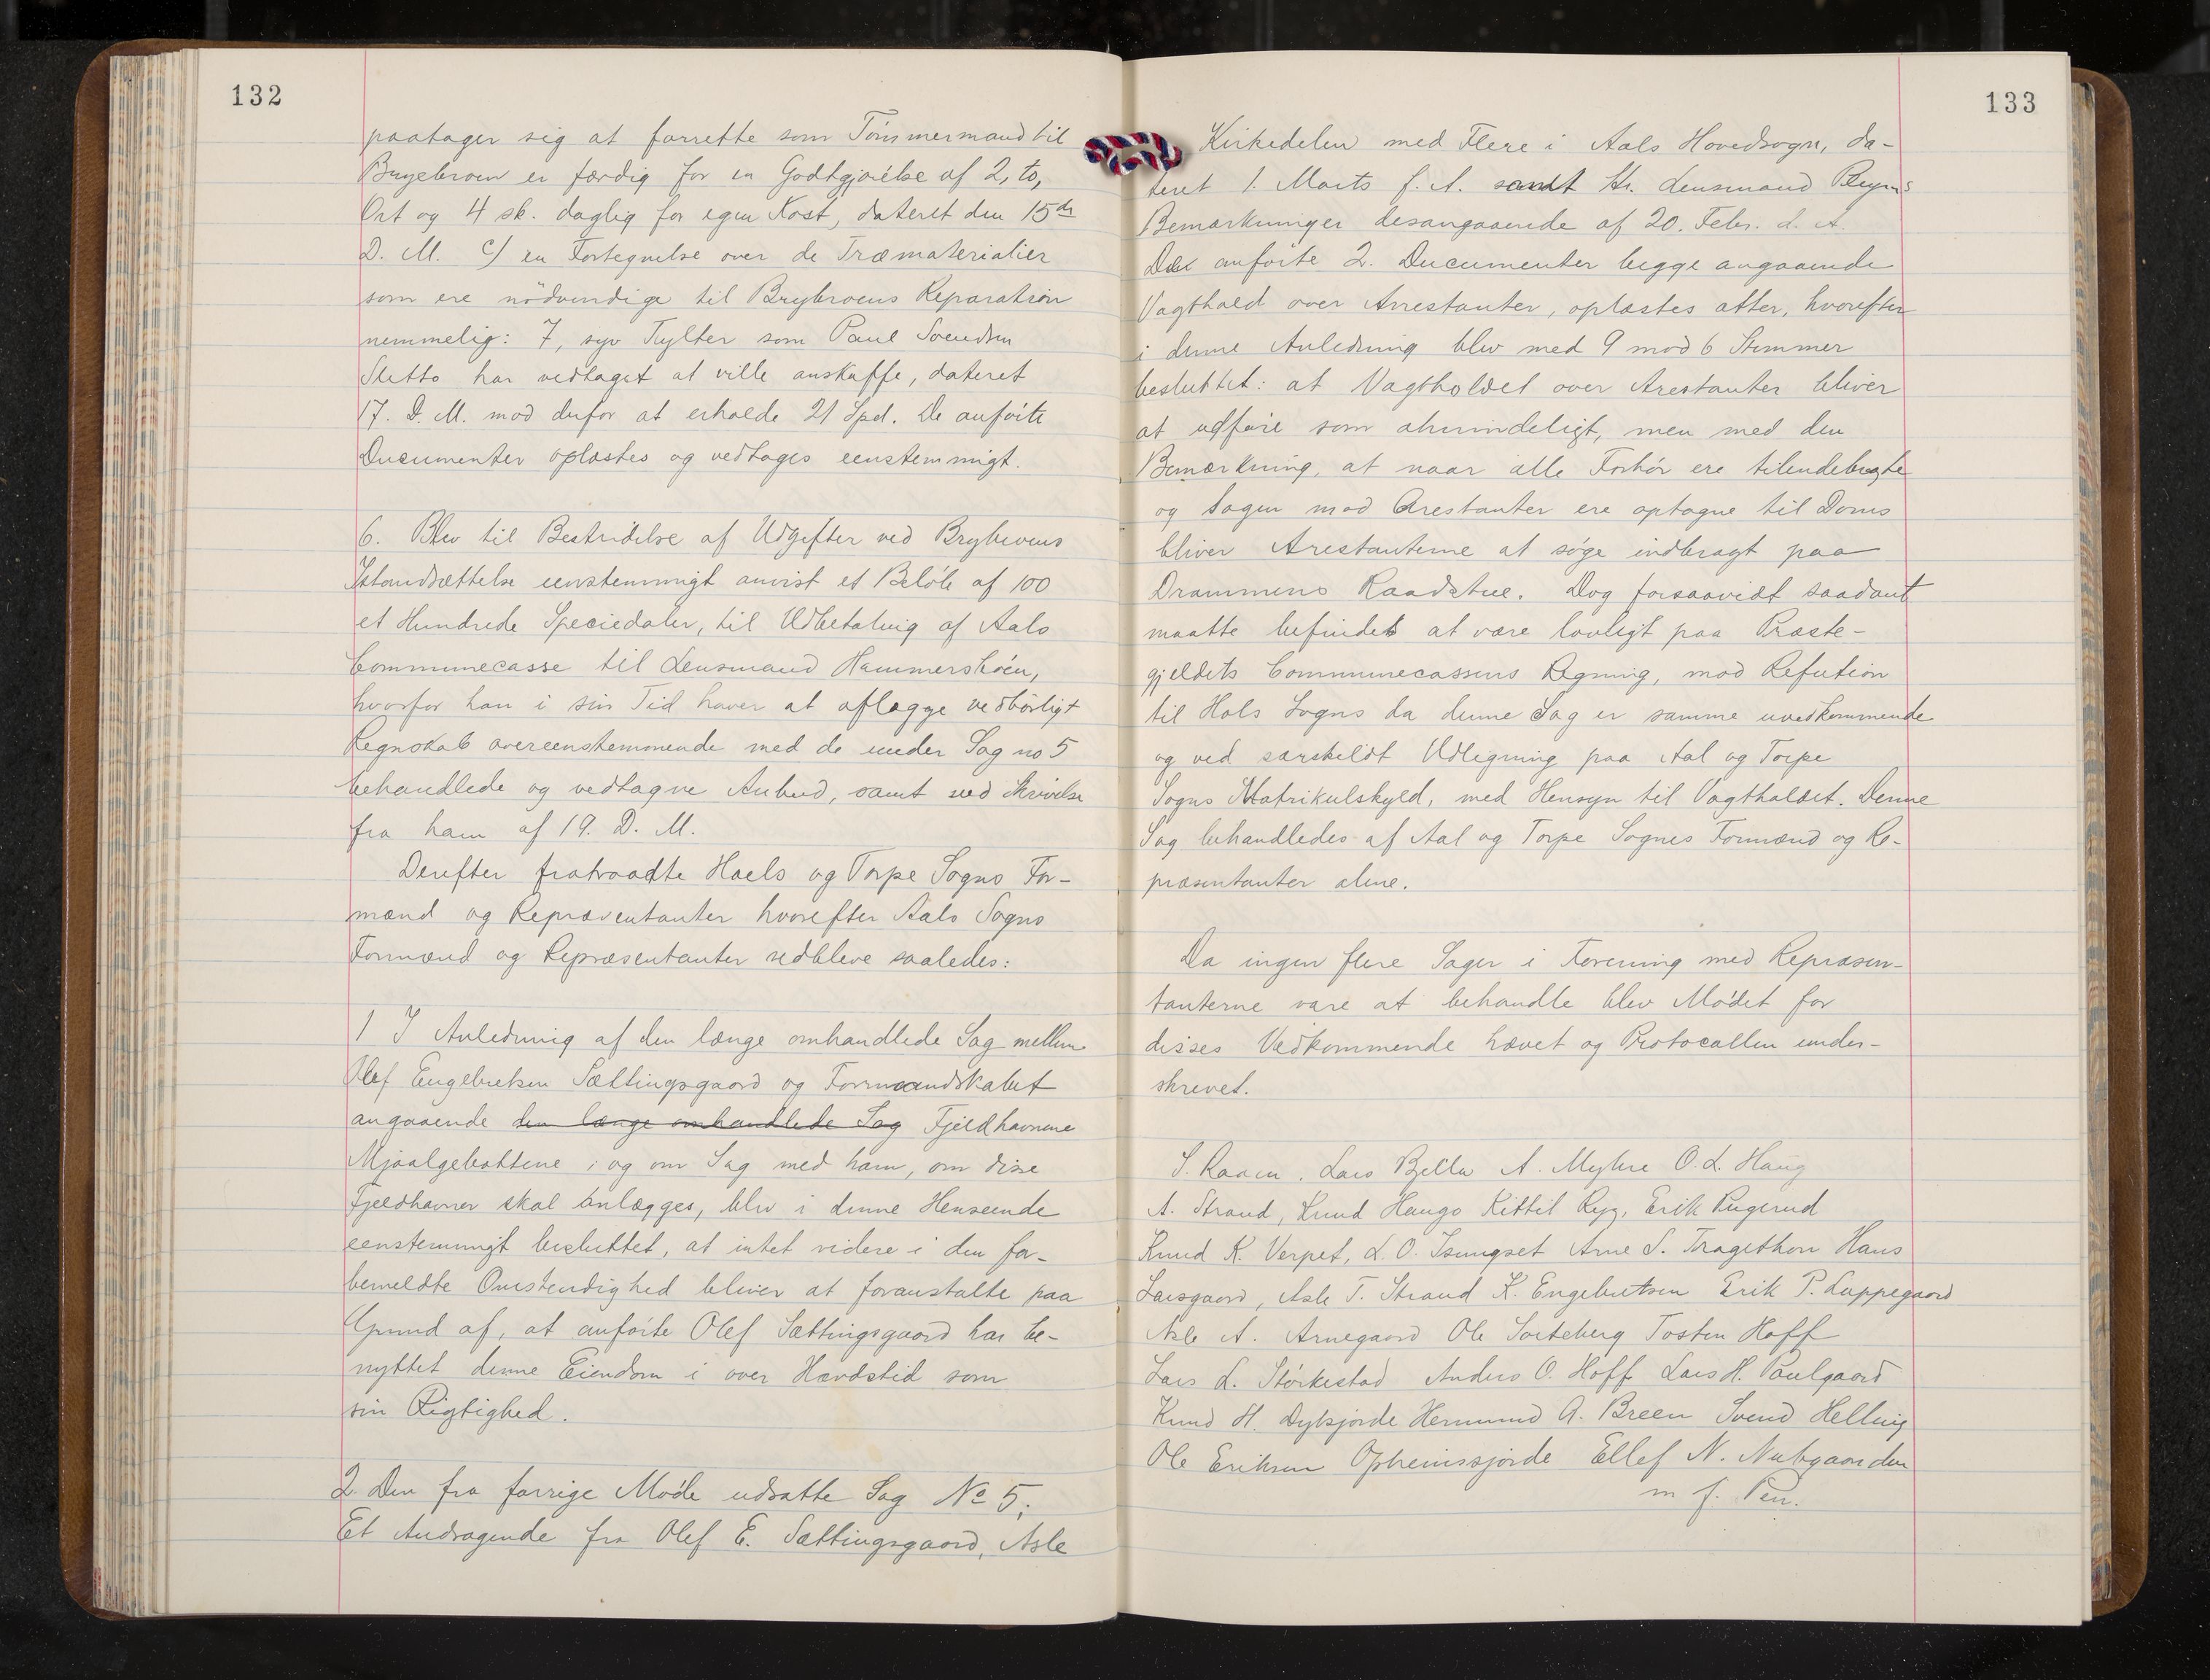 132
paatager sig at forrette som Tömmermand til
Bryebroen er færdig for en Godtgjörelse af 2, to,
Ort og 4 sk. daglig for egen Kost, dateret den 15de
D. M. c) en Fortegnelse over de Træmaterialier
som ere nödvendige til Brybroens Reparation
nemmelig: 7, syv Tylter som Paul Svendsen
Sletto har vedtaget at ville anskaffe, dateret
17. D. M. mod derfor at erholde 21 Spd. De anförte
Documenter oplæstes og vedtages eenstemmigt.
6. Blev til Bestridelse af Udgifter ved Brybroens
Istandsættelse eenstemmigt anvist et Belöb af 100
et Hundrede Speciedaler, til Udbetaling af Aals
Communecasse til Lensmand Hammersbóen,
hvorfor han i sin Tid haver at aflægge vedbörligt
Regnskab overeenstemmende med de under Sag no 5
behandlede og vedtagne Anbud, samt ved Skrivelse
fra ham af 19. D. M.
Derefter fratraadte Hols og Torpe Sogns For-
mænd og Repræsentanter hvorefter Aals Sogns
Formænd og Repræsentanter vedbleve saaledes:
1 I Anledning af den længe omhandlede Sag mellem
Olef Engebretsen Sættingsgaard og Formandskabet
angaaende den længe omhandlede Sag Fjeldhavnene
Mjaalgebottene i og om Sag med ham, om disse
Fjeldhavner skal anlægges, blev i denne Henseende
eenstemmigt besluttet, at intet videre i den for-
bemeldte Omstendighed bliver at foranstalte paa
Grund af, at anförte Olef Sættingsgaard har be-
nyttet denne Eiendom i over Hævdstid som
sin Rigtighed.
2. Den fra forrige Möde udsatte Sag No 5;
Et Andragende fra Olef E. Sættingsgaard, Asle
133
Kirkedelen med Flere i Aals Hovedsogn, da-
teret 1. Marts f. A. samt Hr. Lensmand
Bemærkninger desangaaende af 20. Febr. d. A.
De anförte 2. Documenter begge angaaende
Vagthold over Arrestanter, oplæstes atter, hvorefter
i denne Anledning blev med 9 mod 6 Stemmer
besluttet: at Vagtholdet over Arestanter bliver
at udföre som almindeligt, men med den
Bemærkning, at naar alle Forhör ere tilendebragte
og Sagen mod Arestanter ere optagne til Doms
bliver Arestanterne at söge indbragt paa
Drammens Raadstue. Dog forsaavidt saadant
maatte befindes at være lovligt paa Præste-
gjeldets Communecassens Regning, mod Refution
til Hols Sogns da denne Sag er samme uvedkommende
og ved særskeldt Udligning paa Aal og Torpe
Sogns Matrikulskyld, med Hensyn til Vagtholdet. Denne
Sag behandledes af Aal og Torpe Sognes Formænd og Re-
præsentanter alene.
Da ingen flere Sager i Forening med Repræsen-
tanterne vare at behandle blev Mödet for
disses Vedkommende hævet og Protocollen under-
skrevet.
S. Raaen. Lars Bjella A. Myhre O. L. Haug
A. Strand, Knud Haugo Kittil Ryg, Erik Rugerud
Knud K. Verpet, L. O. Tsungset Arne S. Tragethon Hans
Larsgaard, Asle T. Strand K. Engebretsen Erik P. Luppegaard
Asle A. Arnegaard Ole Sorteberg Tosten Hoff
Lars L. Störkestad Anders O. Hoff Lars H. Poulgaard
Knud H. Dyksjorde Hermund A. Breen Svend Helling
Ole Eriksen Opheimssjorde Ellef N. Nubgaarden
m f. Pen.